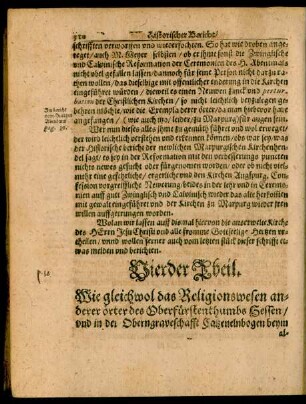 320 Historischer Bericht/
schrifften verworffen und widersprochen. So hat wie droben ange-
reget/ auch M. Beyer selbsten/ ob er ihme sonst die Zwinglische
und Calvinische Reformation der Ceremonien des H. Abentmals
nicht ubel gefallen lassen/ dannoch für seine Person nicht darzu ra-
then wollen/ das dieselbige mit offentlicher enderung in die Kirchen
eingeführet würden/ derweil es einen Neuwen zanck und pertur-
bation der Christlichen Kirchen/ so nicht leichtlich widerumb zu
heben möchte wie der Exempla derer örter da man es anderswo hatt
angefangen/ (wie auch itzo/ leider/ zu Marpurg) für augen seien.
Wer nun dieses alles ihme zu gemüth führet und wol erweget/
der wird leichtlich verstehen und erkennen können/ ob wahr sey was
der Historische bericht des newlichen Marpurgischen Kirchenhan-
del sagt/ es sey in der Reformation mit den verbesserungs puncten
nichts newes gesucht oder fürgenommen worden/ oder ob nicht viel-
mehr eine gefehrliche/ ergerliche und den Kirchen Augspurg. Con-
fession vorgreiffliche Newerung beides in der lehr und in Ceremo-
nien auff gut Zwinglisch und Calvinisch wieder das alte herbrach-
te eingeführet und der Kirchen zu Marpurg wieder ihren
willen auffgetrungen worden.
Wolan wir lassen auff dis mal hiervon die auserwelte Kirche
des HErrn Jesu Christi und alle fromme Gottselige Hertzen ur-
theilen/ und wollen ferner auch vom letzten stück dieser schrifft et-
was melden und berichten.
Vierder Theil.
Wie gleichwol das Religionswesen an-
derer örter des Oberfürstenthumbs Hessen/
und in der Oberngraveschafft Catzenelnbogen beym
al-